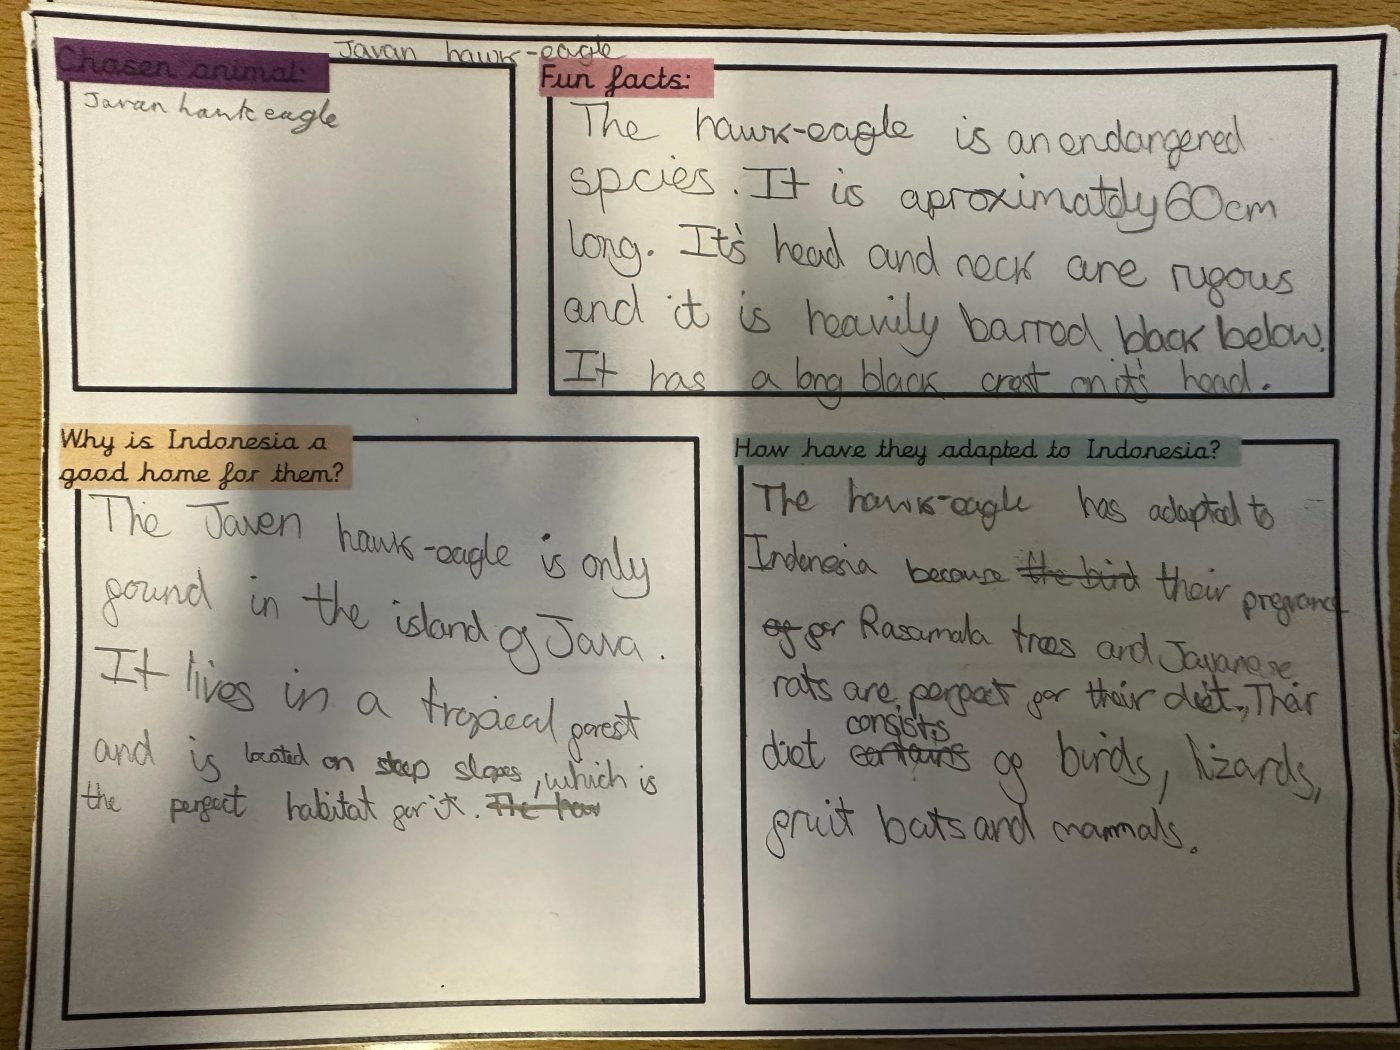 Javan hawk-eagle
Chosen animal:
Javan hawk eagle
Fun facts:
The hawk-eagle is an endangered
spcies. It is aproximatdy 60cm
long. It's head and neck are rugous
and it is heavily barred black below.
It has a long black crest on it's head.
Why is Indonesia a
good home for them?
The Javen hawk-eagle is only
found in the island of Java.
It lives in a tropical forest
and is located on steep slopes, which is
the perfect habitat for it. The haw
How have they adapted to Indonesia?
The hawk-eagle has adapted to
Indonesia because the bird their prefrance
of for Rasamala trees and Javanese
rats are perfect for their diet. Their
consists
diet contains of birds, lizards,
fruit bats and mammals.